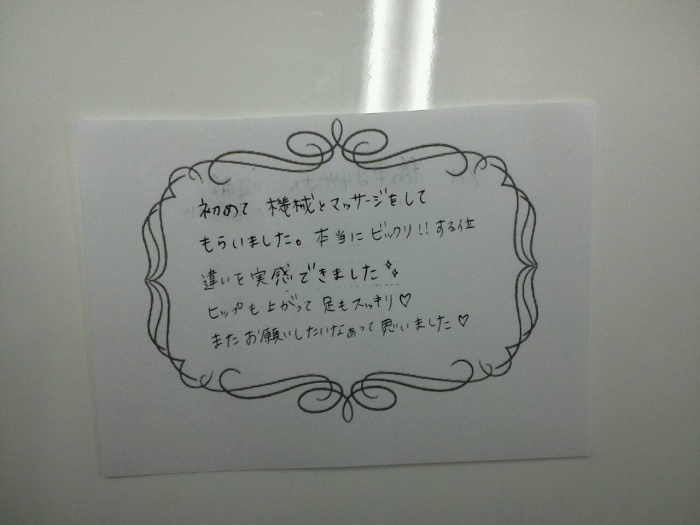 初めて 機械とマッサージをして
もらいました。本当にビックリ!!する位
違いを実感できました✨
ヒップも上がって足もスッキリ♡
またお願いしたいなぁって思いました♡